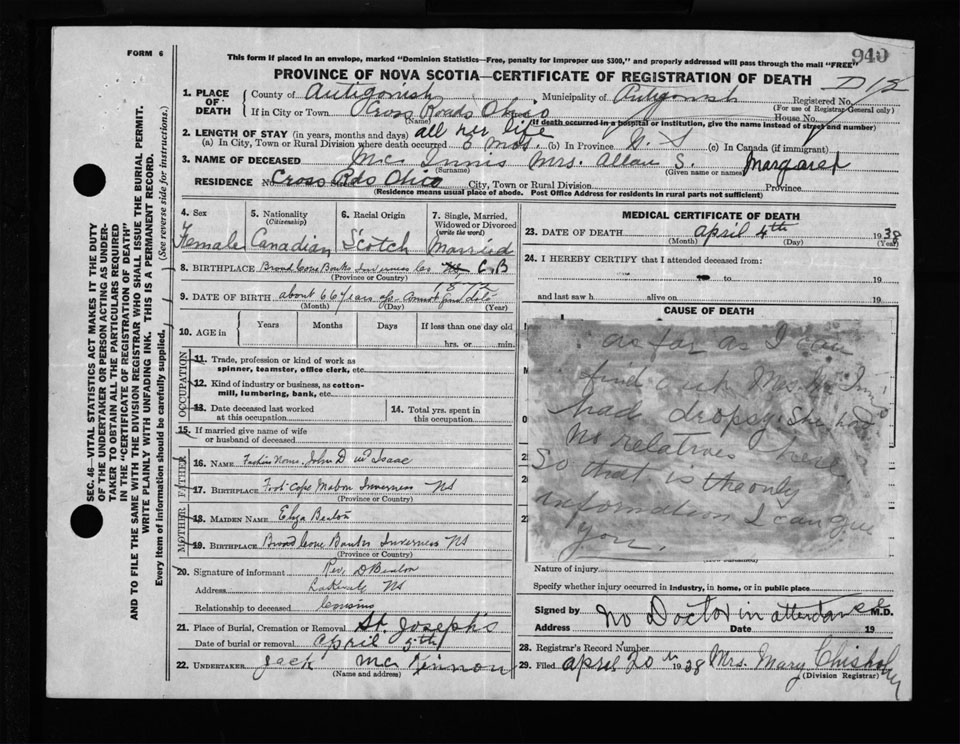 FORM 6
This form if placed in an envelope, marked "Dominion Statistics—Free, penalty for improper use $300," and properly addressed will pass through the mail "FREE"
940
PROVINCE OF NOVA SCOTIA—CERTIFICATE OF REGISTRATION OF DEATH
1. PLACE OF DEATH
County of Antigonish Municipality of Antigonish Registered No.
(For use of Registrar General only)
If in City or Town Cross Roads Ohio House No.
(Name) (If death occurred in a hospital or institution, give the name instead of street and number)
2. LENGTH OF STAY (in years, months and days) all her life
(a) In City, Town or Rural Division where death occurred 6 Mos. (b) In Province N. S (c) In Canada (if immigrant)
3. NAME OF DECEASED Mc Innis Mrs. Allan S. Margaret
(Surname) (Given name or names)
RESIDENCE No Cross Rds Ohio City, Town or Rural Division Province
(Residence means usual place of abode. Post Office Address for residents in rural parts not sufficient)
4. Sex
Female
5. Nationality (Citizenship)
Canadian
6. Racial Origin
Scotch
7. Single, Married, Widowed or Divorced (write the word)
Married
8. BIRTHPLACE Broad Cove Banks Inverness Co C.B
(Province or Country)
1872
9. DATE OF BIRTH about 66 years age Cannot find date
(Month) (Day) (Year)
10. AGE in Years Months Days If less than one day old
hrs. or min.
OCCUPATION
11. Trade, profession or kind of work as spinner, teamster, office clerk, etc.
12. Kind of industry or business, as cotton-mill, lumbering, bank, etc.
13. Date deceased last worked at this occupation
14. Total yrs. spent in this occupation
15. If married give name of wife or husband of deceased
FATHER
16. NAME Fathers Name, John D Isaac
17. BIRTHPLACE Foot Cape Mabou Inverness NS
(Province or Country)
MOTHER
18. MAIDEN NAME Eliza Beaton
19. BIRTHPLACE Broad Cove Banks Inverness NS
(Province or Country)
20. Signature of informant Rev. D Beaton
Address Lakevale NS
Relationship to deceased Cousins
21. Place of Burial, Cremation or Removal St. Joseph's
Date of burial or removal April 5th
22. UNDERTAKER Jack McKinnon
(Name and address)
MEDICAL CERTIFICATE OF DEATH
23. DATE OF DEATH April 4th 1938
(Month) (Day) (Year)
24. I HEREBY CERTIFY that I attended deceased from:
19
to 19
and last saw h alive on 19
CAUSE OF DEATH
as far as I can
find out Mrs. Mc Inn
had dropsy. She has
No relatives here
So that is the only
information I can give
you.
Nature of injury
Specify whether injury occurred in industry, in home, or in public place
Signed by No Doctor in attendance M.D.
Address Date 19
28. Registrar's Record Number
29. Filed April 20th 1938 Mrs. Mary Chisholm
(Division Registrar)
SEC. 46—VITAL STATISTICS ACT MAKES IT THE DUTY
OF THE UNDERTAKER OR PERSON ACTING AS UNDER-
TAKER TO OBTAIN ALL THE PARTICULARS REQUIRED
IN THE "CERTIFICATE OF REGISTRATION OF DEATH"
AND TO FILE THE SAME WITH THE DIVISION REGISTRAR WHO SHALL ISSUE THE BURIAL PERMIT.
WRITE PLAINLY WITH UNFADING INK. THIS IS A PERMANENT RECORD.
Every item of information should be carefully supplied. (See reverse side for instructions.)